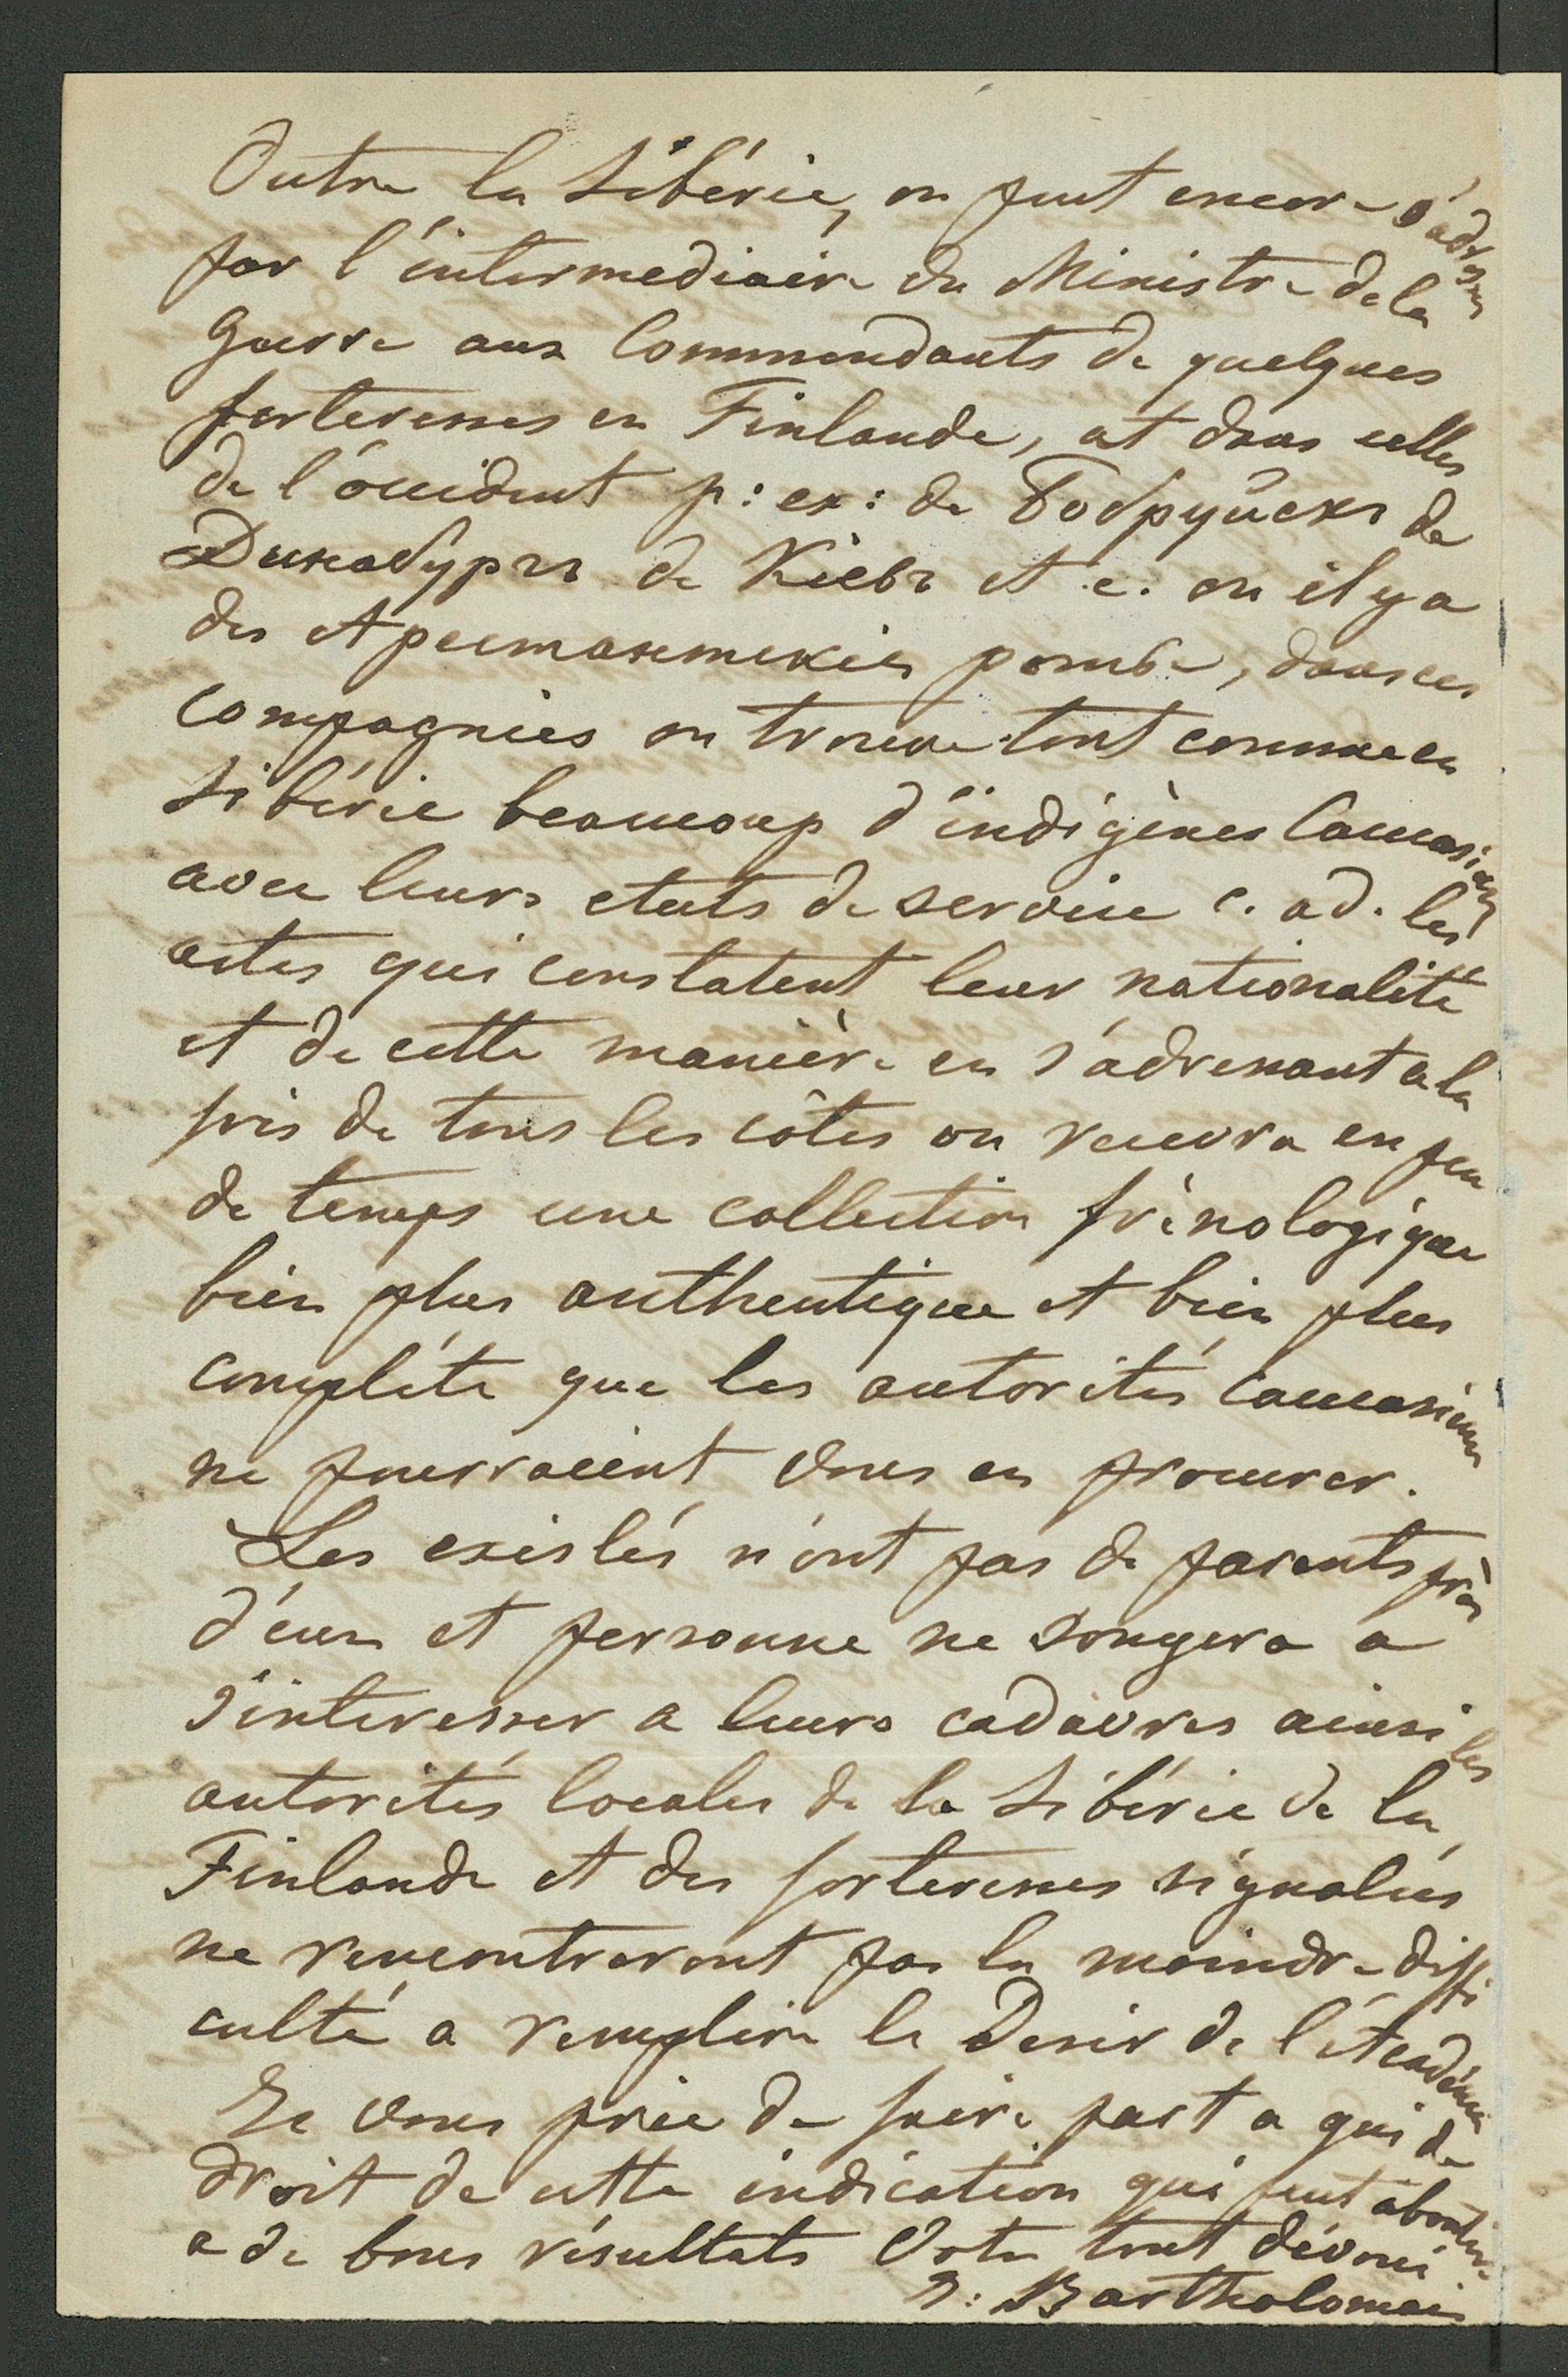 Outre la Sibérie, on peut encore s'adresser
par l'intermediaire du Ministre de la
guerre aux Commendants de quelques
forteresses en Finlande, et dans celles
de l'occident p: ex: de Бобруйскъ de
Динабургъ de Кіевъ et c. ou il y a
des Арестантскія роты, dans ces
compagnies on trouve tout comme en
Sibérie beaucoup d'indigènes Caucasiens
avec leurs etats de service c. ad. les
actes qui constatent leur nationalité
et de cette manière en s'adressant a la
fois de tous les côtés on recevra en peu
de temps une collection frénologique
bien plus authentique et bien plus
complète que les autorités Caucasiennes
ne pourraient vous en procurer.
Les exislés n'ont pas de parents près
d'eux et personne ne songera a
s'interesser a leurs cadavres ainsi les
autorités locales de la Sibérie de la
Finlande et des forteresses signalées
ne rencontreront pas la moindre diffi
culté a remplire le Desir de l'Académie
Je vous prie de faire part a qui de
droit de cette indication qui peut aboutir
a de bons résultats Votre tout dévoué
J: Bartholomaei